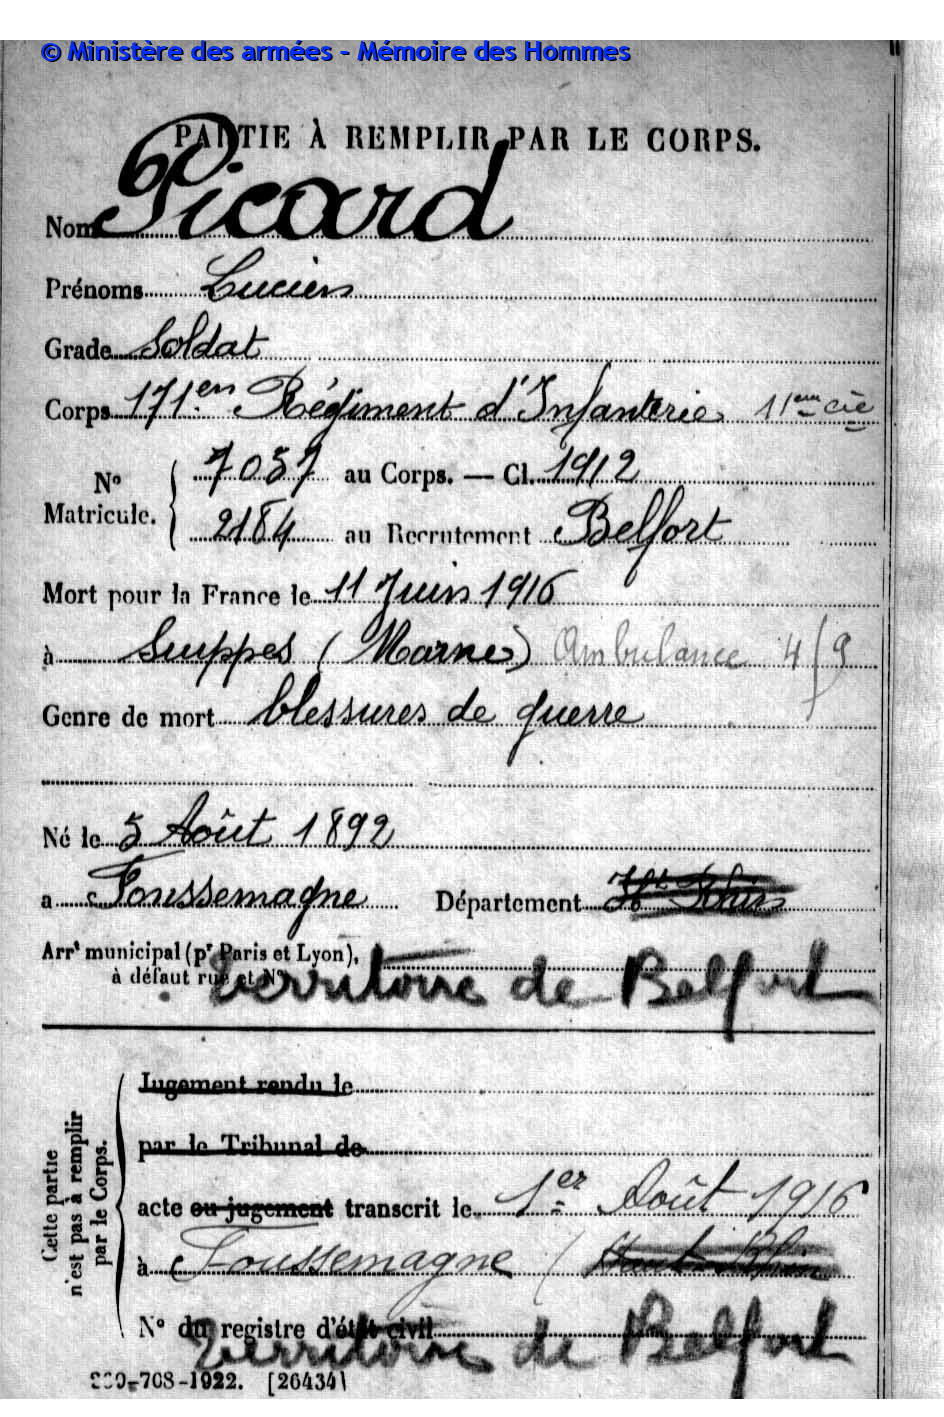 © Ministère des armées - Mémoire des Hommes
PARTIE À REMPLIR PAR LE CORPS.
Nom Picard
Prénoms Lucien
Grade Soldat
Corps 171en Régiment d'Infanterie 11eme cie
N° Matricule. 7037 au Corps. — Cl. 1912
2184 au Recrutement Belfort
Mort pour la France le 11 Juin 1916
à Suippes (Marne) Ambulance 4/9
Genre de mort blessures de guerre
Né le 5 Août 1892
à Foussemagne Département Ht Rhin
Arrt municipal (pr Paris et Lyon),
à défaut rue et N°
Territoire de Belfort
Cette partie n'est pas à remplir par le Corps.
Jugement rendu le
par le Tribunal de
acte ou jugement transcrit le 1er Août 1916
à Foussemagne (Haut Rhin
N° du registre d'état civil
Territoire de Belfort
-708-1922. [26434]